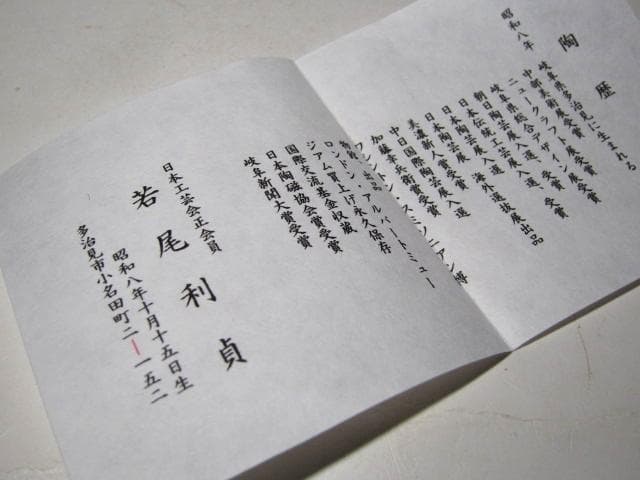 陶歴
昭和八年
岐阜県多治見に生まれる
中部美術展受賞
ニュークラフトデザイン展受賞
岐阜県総合展入選、受賞
朝日陶芸展入選、受賞
日本伝統工芸展入選
日本陶芸展入選、海外選抜展出品
美濃新人展受賞
中日国際陶芸展受賞
加藤幸兵衛賞受賞
ワシントン、スミソニアン博
ロンドン・アルバートミュー
ジアム買上げ永久保存
国際交流基金収蔵
日本陶磁協会賞受賞
岐阜新聞大賞受賞
日本工芸会正会員
若尾利貞
昭和八年十月十五日生
多治見市小名田町二ー一五二